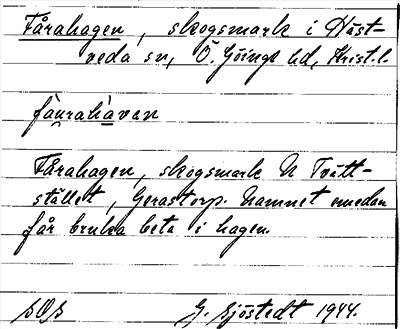 Fårahagen, skogsmark i Häst-
veda sn, Ö. Göinge hd, Krist. l.
fåurahàvan
Fårahagen, skogsmark N Tvätt-
stället, Gerastorp. Namnet emedan
får bruka beta i hagen.
G. Sjöstedt 1944.